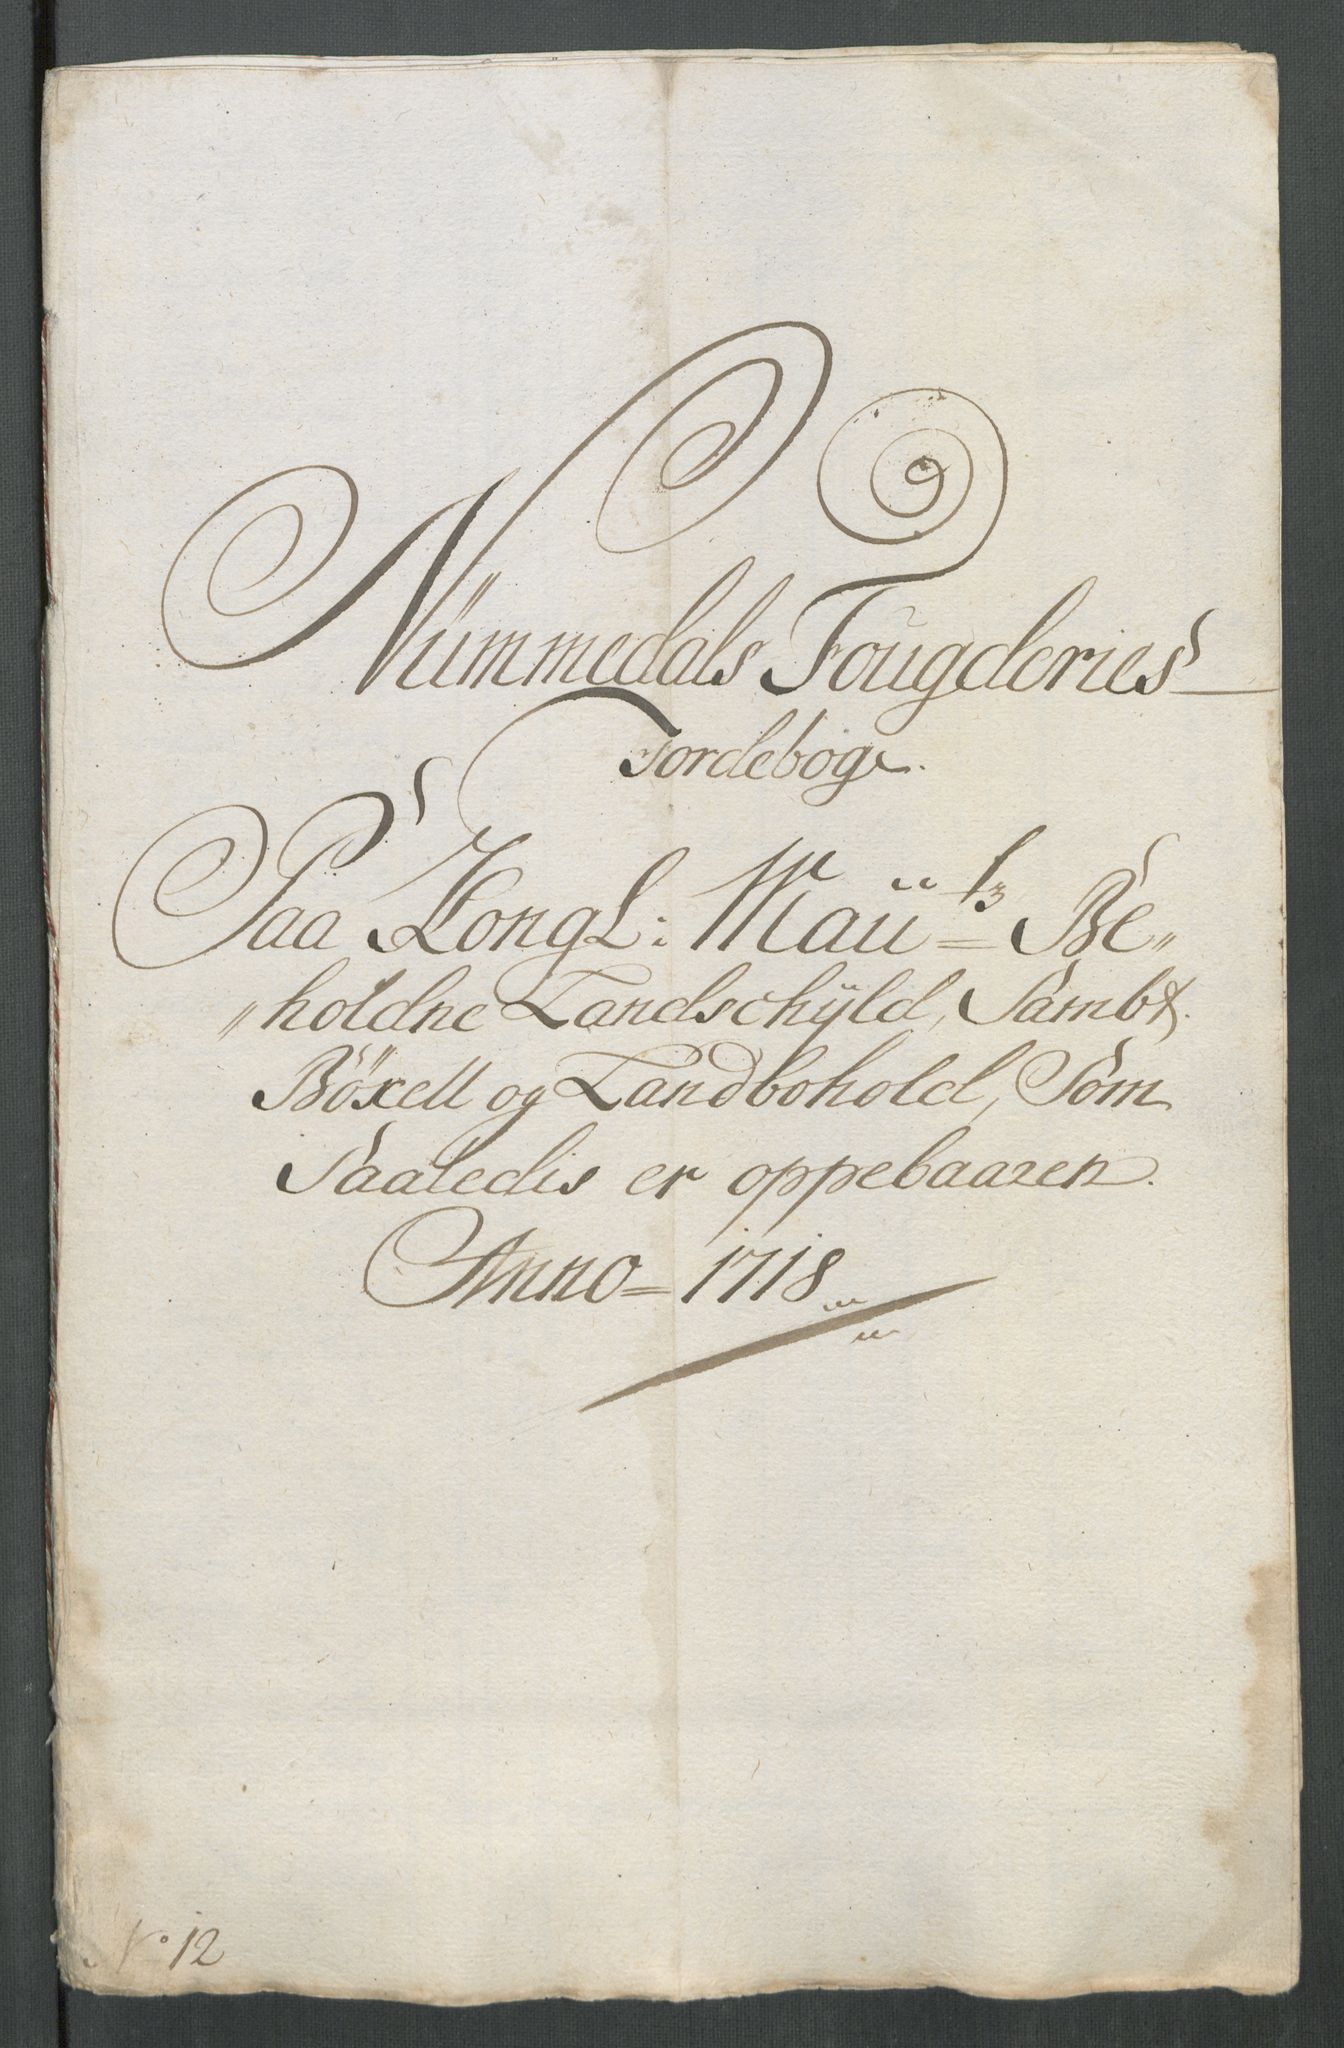 Nümmedals Fougderies
Jordebog
Paa Kongl: Maÿts Be„
„holdne Landschÿld, Sambt
Böxell og Landbohold, Som
Saaledis er oppebaaren.
Anno = 1718
No 12